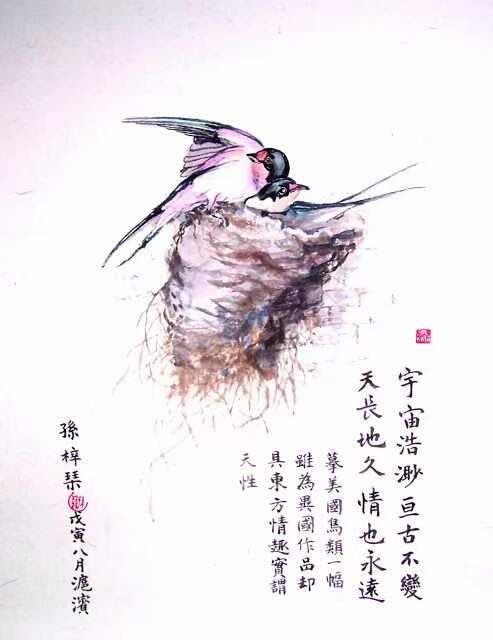 宇宙浩渺亘古不變
天長地久情也永遠
摹美國鳥類一幅
雖為異國作品却
具東方情趣實謂
天性
孫梓琹
戊寅八月滬濱